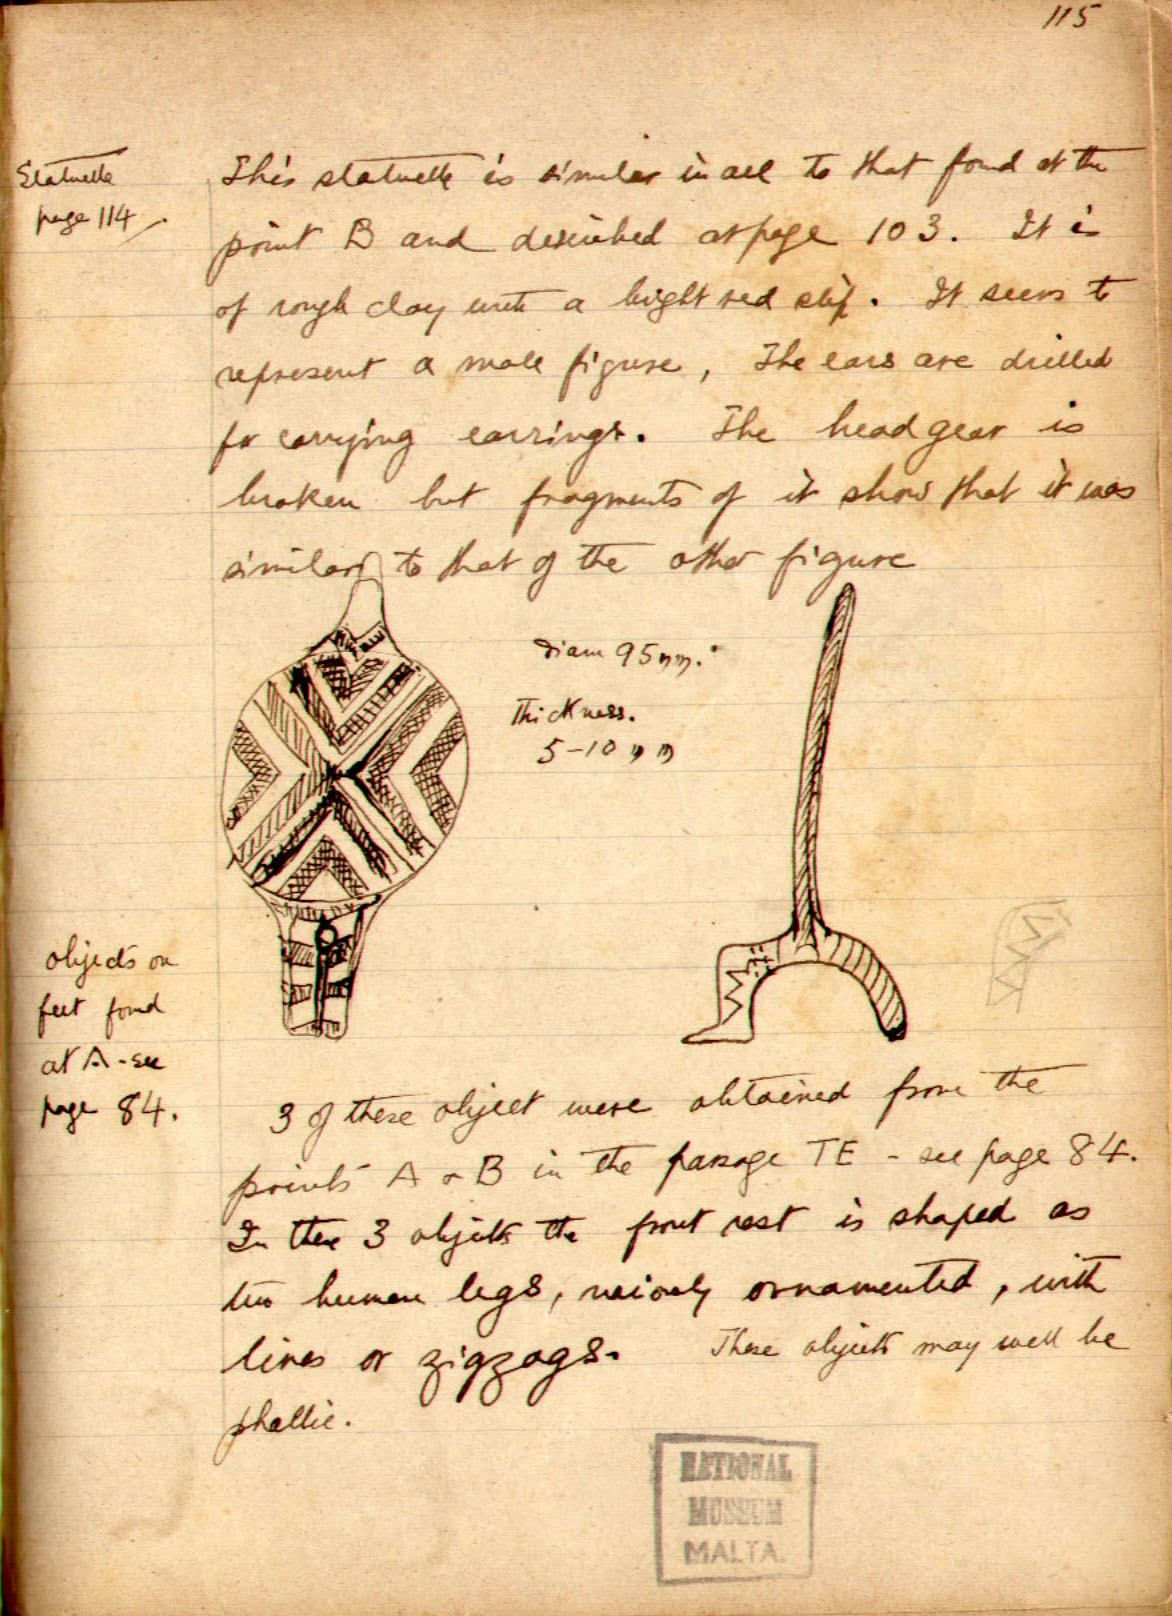 115
Statuette
page 114
This statuette is similar in all to that found at the
point B and described at page 103. It is
of rough clay with a bright red slip. It seems to
represent a male figure, The ears are drilled
for carrying earrings. The head gear is
broken but fragments of it show that it was
similar to that of the other figure
Diam 95 mm.
Thickness.
5-10 mm
objects on
feet found
at A - see
page 84.
3 of these object were obtained from the
points A & B in the passage TE - see page 84.
In these 3 objects the front rest is shaped as
two human legs, variously ornamented, with
lines or zigzags. These objects may well be
phallic.
NATIONAL
MUSEUM
MALTA.